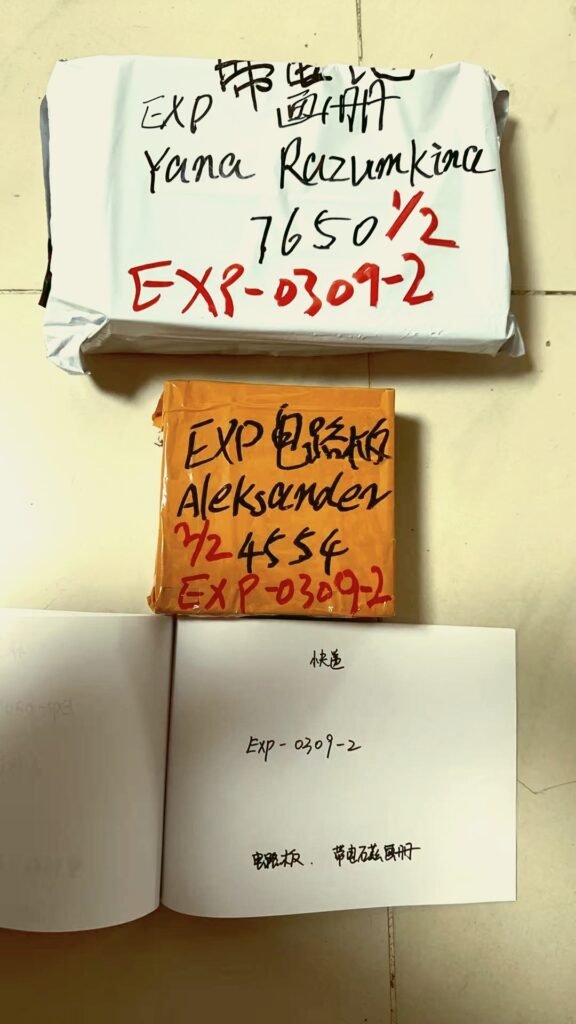 EXP 画册
Yana Razumkina
7650 1/2
EXP-0309-2
EXP 电路板
Aleksander
2/2 4554
EXP-0309-2
快递
Exp-0309-2
电路板. 带电磁画册